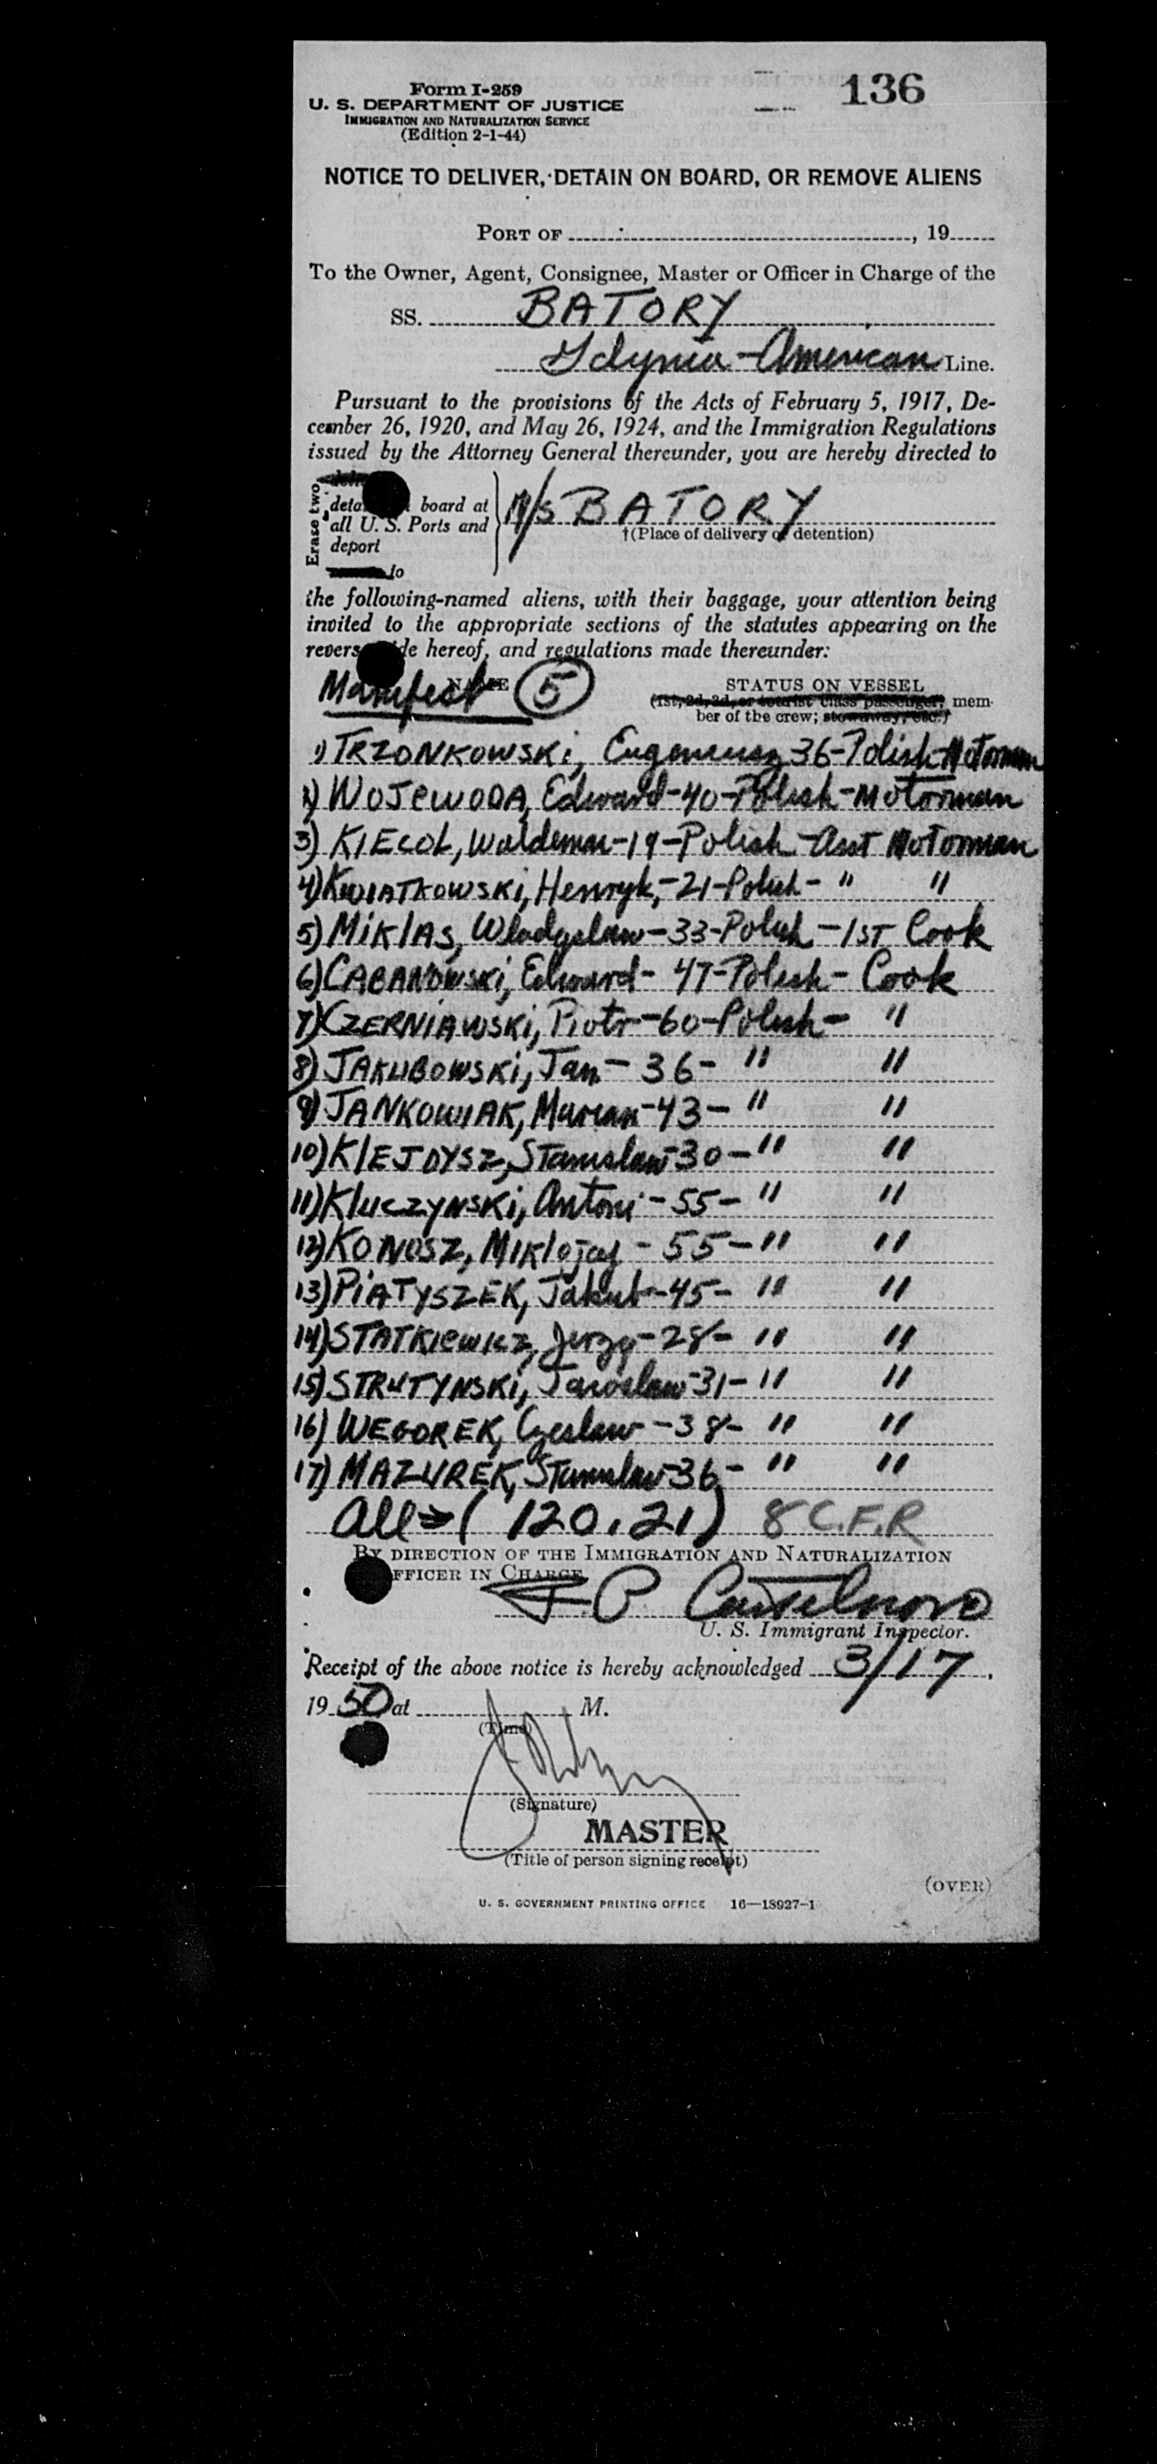 136
Form I-259
U. S. DEPARTMENT OF JUSTICE
IMMIGRATION AND NATURALIZATION SERVICE
(Edition 2-1-44)
NOTICE TO DELIVER, DETAIN ON BOARD, OR REMOVE ALIENS
PORT OF , 19
To the Owner, Agent, Consignee, Master or Officer in Charge of the
SS. BATORY
Gdynia-American Line.
Pursuant to the provisions of the Acts of February 5, 1917, De-
cember 26, 1920, and May 26, 1924, and the Immigration Regulations
issued by the Attorney General thereunder, you are hereby directed to
Erase two
board at
all U. S. Ports and
deport
to
M/S BATORY
†(Place of delivery or detention)
the following-named aliens, with their baggage, your attention being
invited to the appropriate sections of the statutes appearing on the
hereof, and regulations made thereunder:
Manifest 5 NAME
STATUS ON VESSEL
(1st, 2d, 3d, or tourist class passenger; mem-
ber of the crew; stowaway, etc.)
1) TRZONKOWSKi, Eugeniusz 36-Polish-Motorman
2) WOJEWODA, Edward-40-Polish-Motorman
3) KIECOL, Waldemar-19-Polish-Asst Motorman
4) KWIATKOWSKi, Henryk,-21-Polish- " "
5) MIKlAS, Wladyslaw-33-Polish-1ST Cook
6) CABANOWSKi, Edward-47-Polish-Cook
7) CZERNIAWSKi, Piotr-60-Polish- "
8) JAKUBOWSKi, Jan-36- " "
9) JANKOWIAK, Marian-43- " "
10) KlEJDYSZ, Stanislaw-30-" "
11) KluczyNSKi, Antoni-55-" "
12) KONOSZ, MIKlojaj-55-" "
13) PiATySZEK, Jakub-45- " "
14) STATKIEWICZ, Jerzy-28- " "
15) STRUTYNSKi, Jaroslaw-31-" "
16) WEGOREK, Czeslaw-38- " "
17) MAZUREK, Stanislaw-36- " "
All → (120.21) 8 C.F.R
BY DIRECTION OF THE IMMIGRATION AND NATURALIZATION
OFFICER IN CHARGE
P. Castelnovo
U. S. Immigrant Inspector.
Receipt of the above notice is hereby acknowledged 3/17,
1950 at M.
(Time)
(Signature)
MASTER
(Title of person signing receipt)
(OVER)
U. S. GOVERNMENT PRINTING OFFICE 16—18927-1